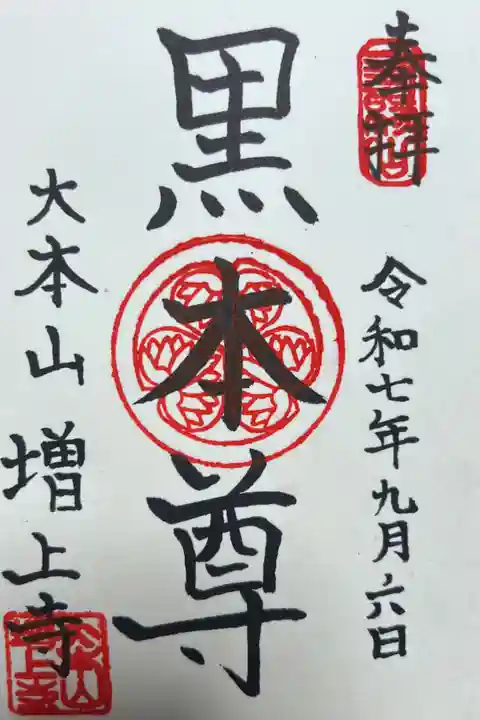 奉拝
令和七年九月六日
黒本尊
大本山増上寺